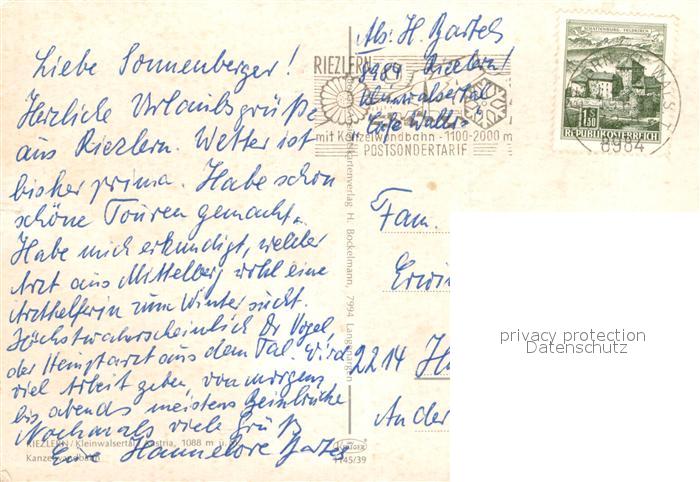 Liebe Sonnenberger!
Herzliche Urlaubsgrüße
aus Riezlern. Wetter ist
bisher prima. Habe schon
schöne Touren gemacht.
Habe mich erkundigt, welcher
Arzt aus Mittelberg wohl eine
Arzthelferin zum Winter sucht.
Höchstwahrscheinlich Dr. Vogel,
der Hauptarzt aus dem Tal. Wird
viel Arbeit geben, von morgens
bis abends meistens Beinbrüche
Nochmals viele Grüße
Eure Hannelore Bartels
RIEZLERN/Kleinwalsertal, Austria, 1088 m ü. M.
Kanzelwandbahn
Abs. H. Bartels
8984 Riezlern
Kleinwalsertal
RIEZLERN
mit Kanzelwandbahn - 1100-2000 m
POSTSONDERTARIF
SCHATTENBURG, FELDKIRCH
1.S
50
REPUBLIK ÖSTERREICH
8984
Ansichtskartenverlag H. Bockelmann, 7994 Langenargen
1145/39
Fam.
Erwin
2214
An der
privacy protection
Datenschutz